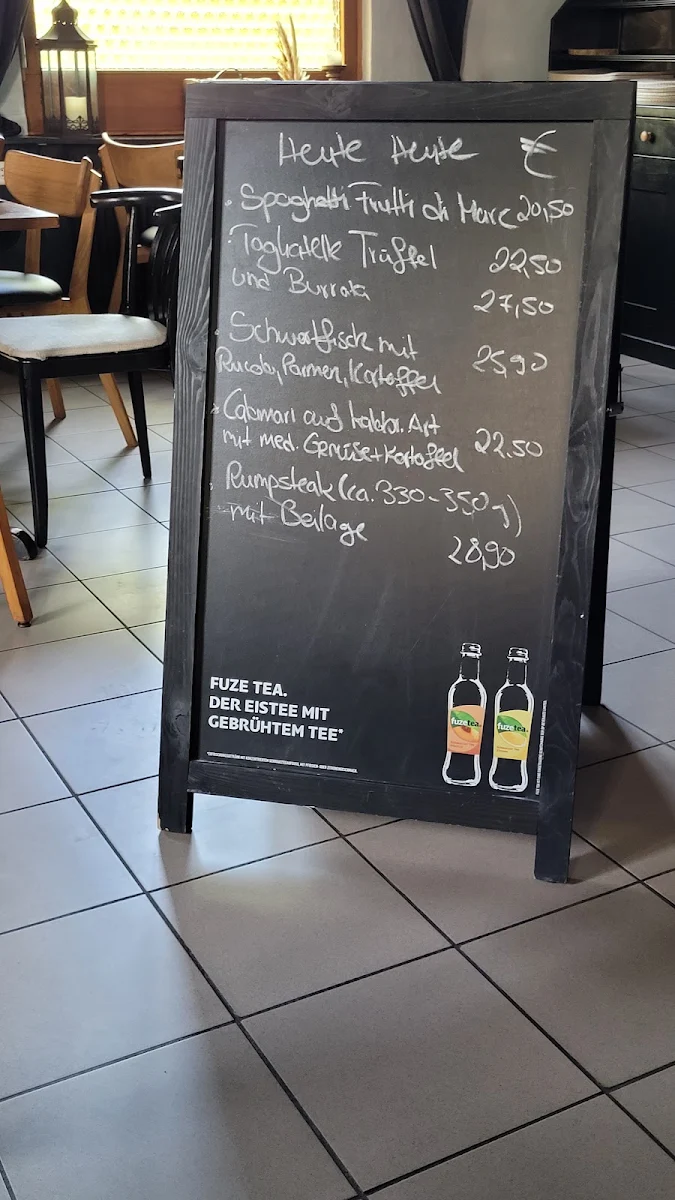 Heute Heute €
· Spaghetti Frutti di Mare 20,50
· Tagliatelle Trüffel 22,50
und Burrata 27,50
· Schwertfisch mit
Rucola, Parmen, Kartoffel 25,90
· Calamari auf kalabr. Art
mit med. Gemüse + Kartoffel 22.50
· Rumpsteak (ca. 330-350g)
mit Beilage
28,90
FUZE TEA.
DER EISTEE MIT
GEBRÜHTEM TEE*
fuzetea fuzetea